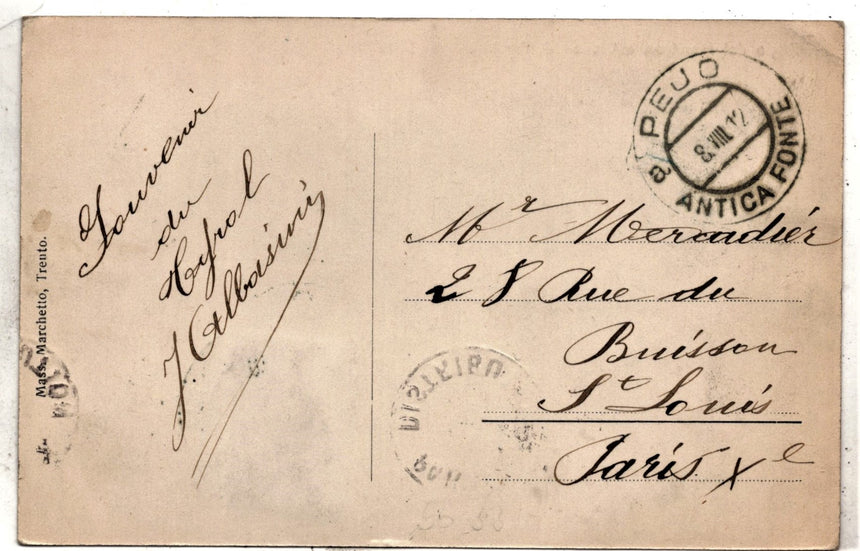 Souvenir
du
Tyrol
J Albasini
Mass. Marchetto, Trento.
PEJO
8.VIII.12
a ANTICA FONTE
Mr Mercadiér
28 Rue du
Buisson
St Louis
Paris Xe
DISTRIBU